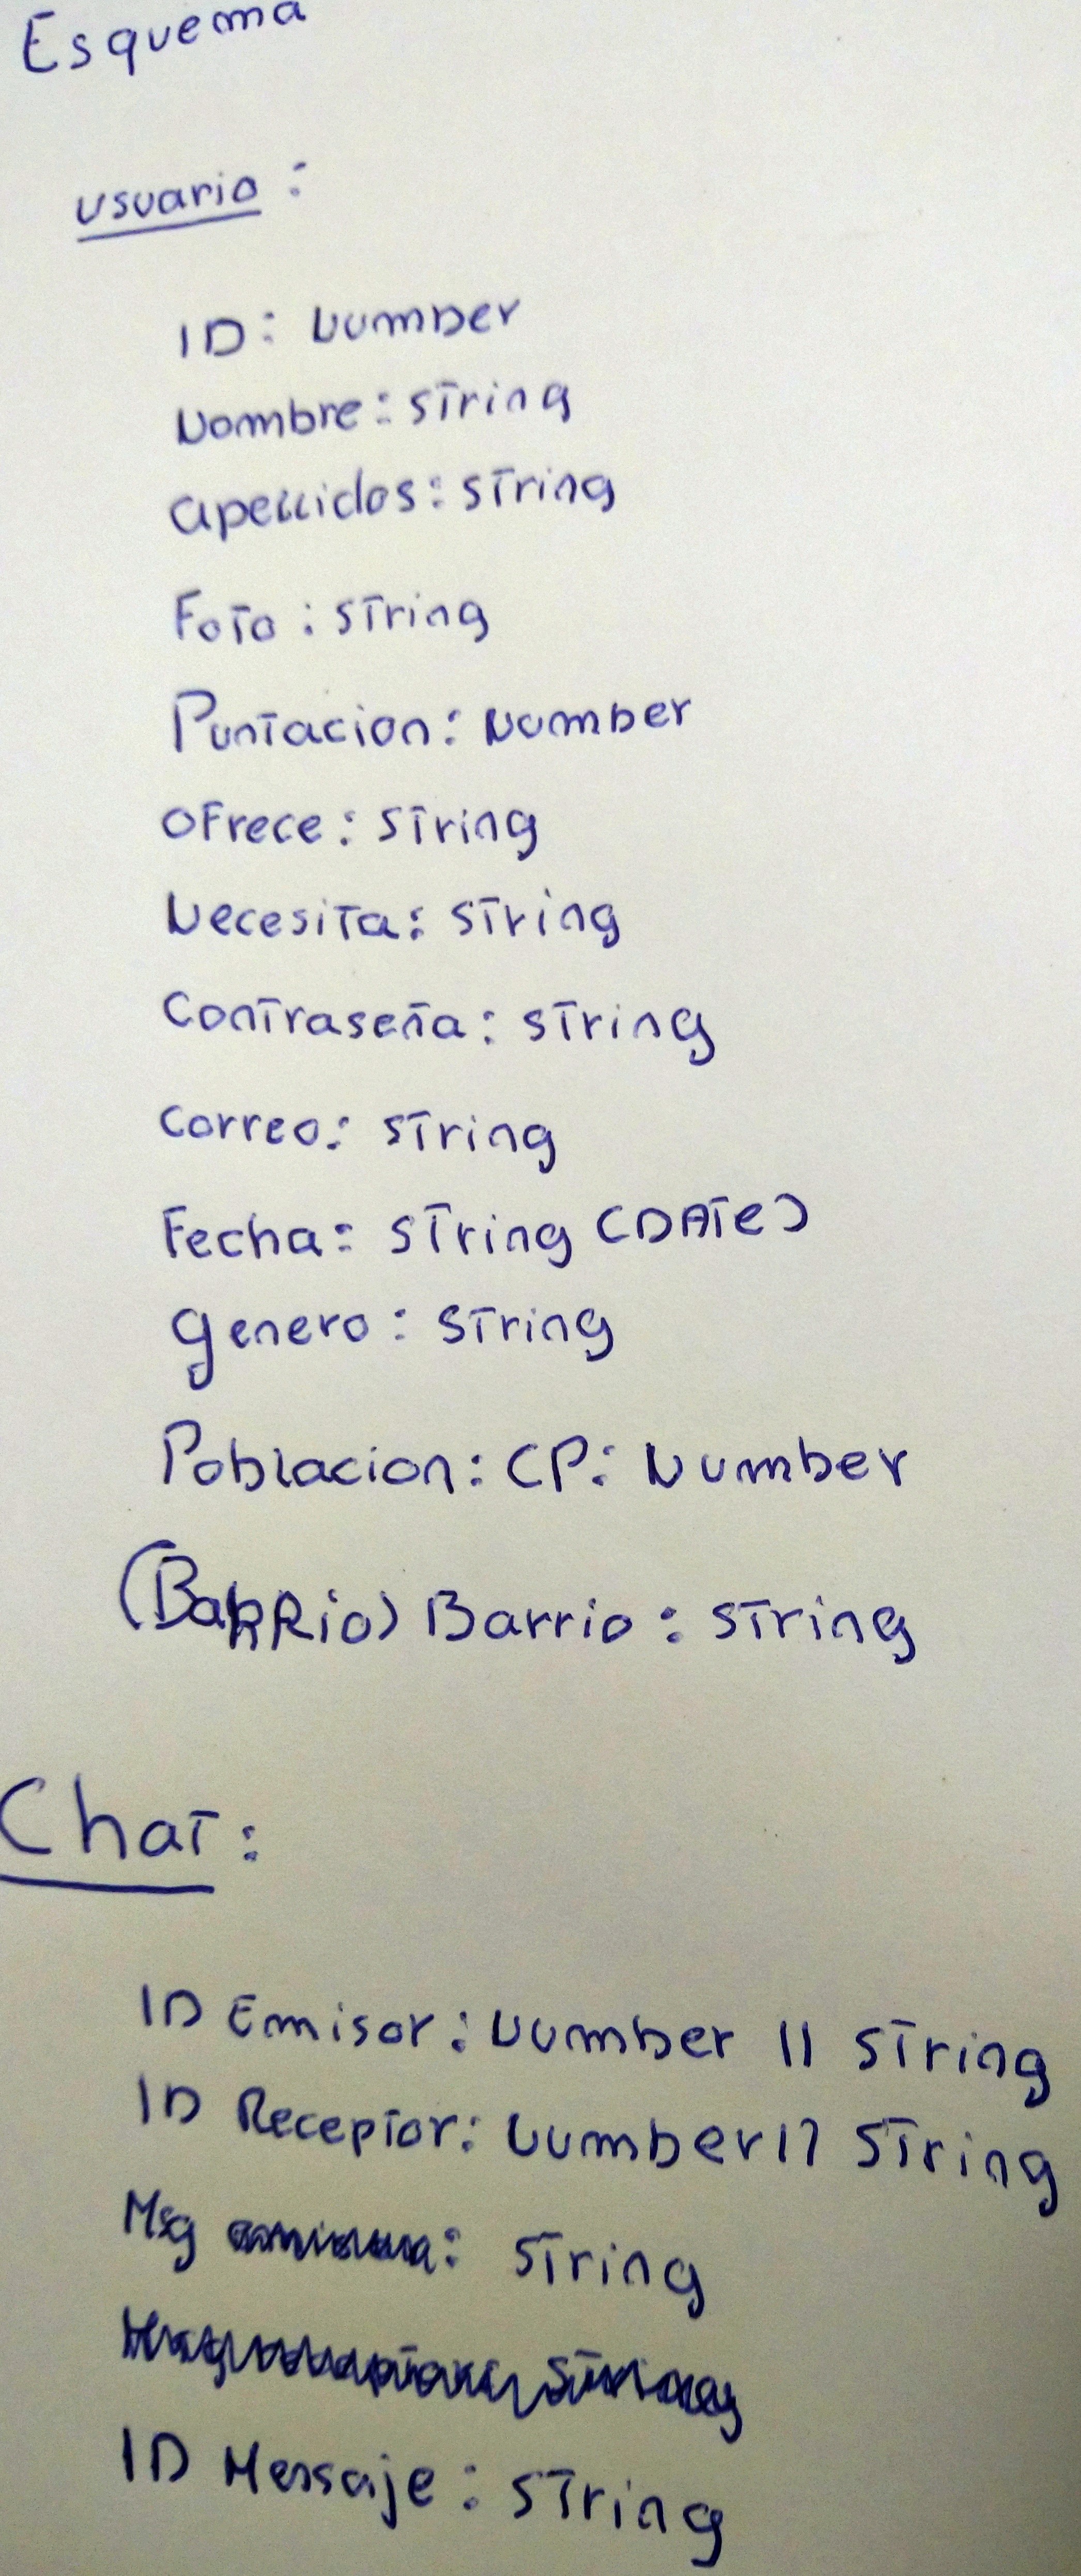 Esquema
usuario:
ID: Number
Nombre: string
apellidos: string
Foto: string
Puntacion: Number
Ofrece: string
Necesita: string
Contraseña: string
Correo: string
Fecha: string (DATe)
genero: string
Poblacion: CP: Number
(BaRRio) Barrio: string
Chat:
ID Emisor: Number || string
ID Receptor: Number || string
Msg : string
ID Mensaje: string